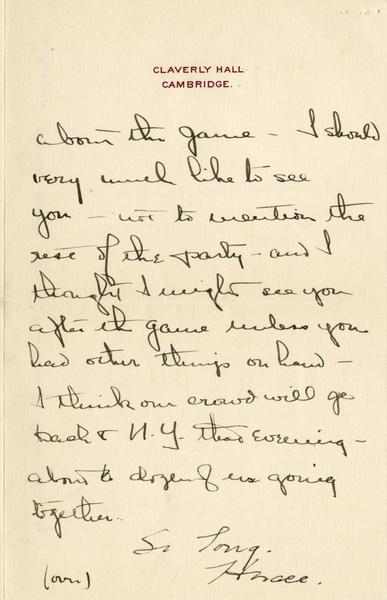 CLAVERLY HALL
CAMBRIDGE.
about the game – I should
very much like to see
you – not to mention the
rest of the party – and I
thought I might see you
after the game unless you
had other things on hand –
I think our crowd will go
back to N.Y. that evening –
about ½ dozen of us going
together.
So Long.
Horace.
(over)